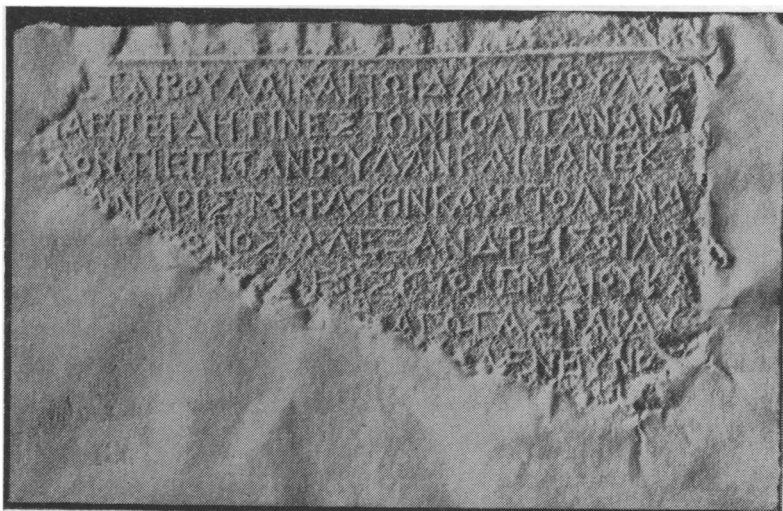 ΤΑΙΒΟΥΛΑΙΚΑΙΤΩΙΔΑΜΩΙΒΟΥΛΑ
ΑΕΠΕΙΔΗΤΙΝΕΣΤΩΝΠΟΛΙΤΑΝΑΝΑ
ΟΝΤΙΕΠΙΤΑΝΒΟΥΛΑΝΚΑΙΤΑΝΕΚ
ΝΑΡΙΣΤΟΚΡΑΤΗΝΚΑΙΠΤΟΛΕΜΑ
ΝΟΣΑΛΕΞΑΝΔΡΕΙΣΦΙΛΟ
ΠΤΟΛΕΜΑΙΟΥΚΑ
ΑΓΩΓΑΣΠΑΡΑΥ